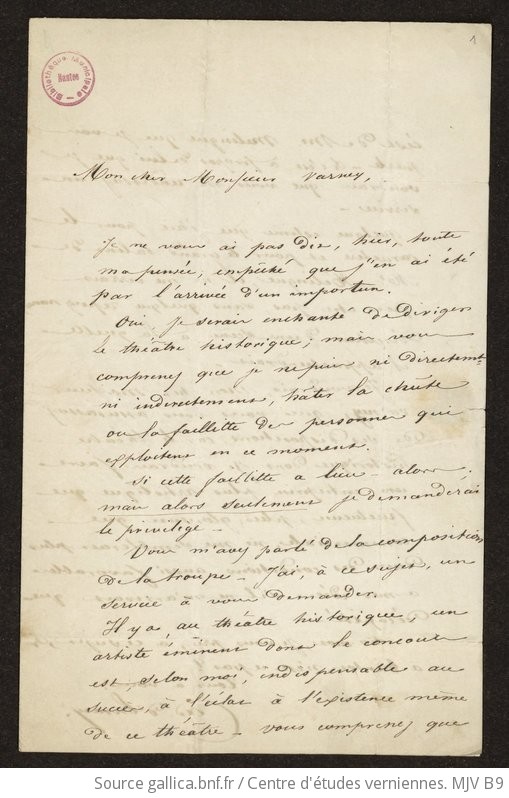 1
Bibliothèque Municipale
Nantes
Mon cher Monsieur Varney,
Je ne vous ai pas dit, hier, toute
ma pensée, empêché que j'en ai été
par l'arrivée d'un importun.
Oui je serais enchanté de diriger
le théâtre historique; mais vous
comprenez que je ne puis ni directemt
ni indirectement, hâter la chûte
ou la faillette des personnes qui
exploitent en ce moment.
Si cette faillette a lieu - alors.
mais alors seulement je demanderais
le privilége -
Vous m'avez parlé de la composition
de la troupe - J'ai, à ce sujet, un
service à vous demander.
Il y a au théâtre historique, un
artiste éminent dont le concours
est, selon moi, indispensable au
succès, à l'éclat à l'existence même
de ce théâtre - vous comprenez que
Source gallica.bnf.fr / Centre d'études verniennes. MJV B9